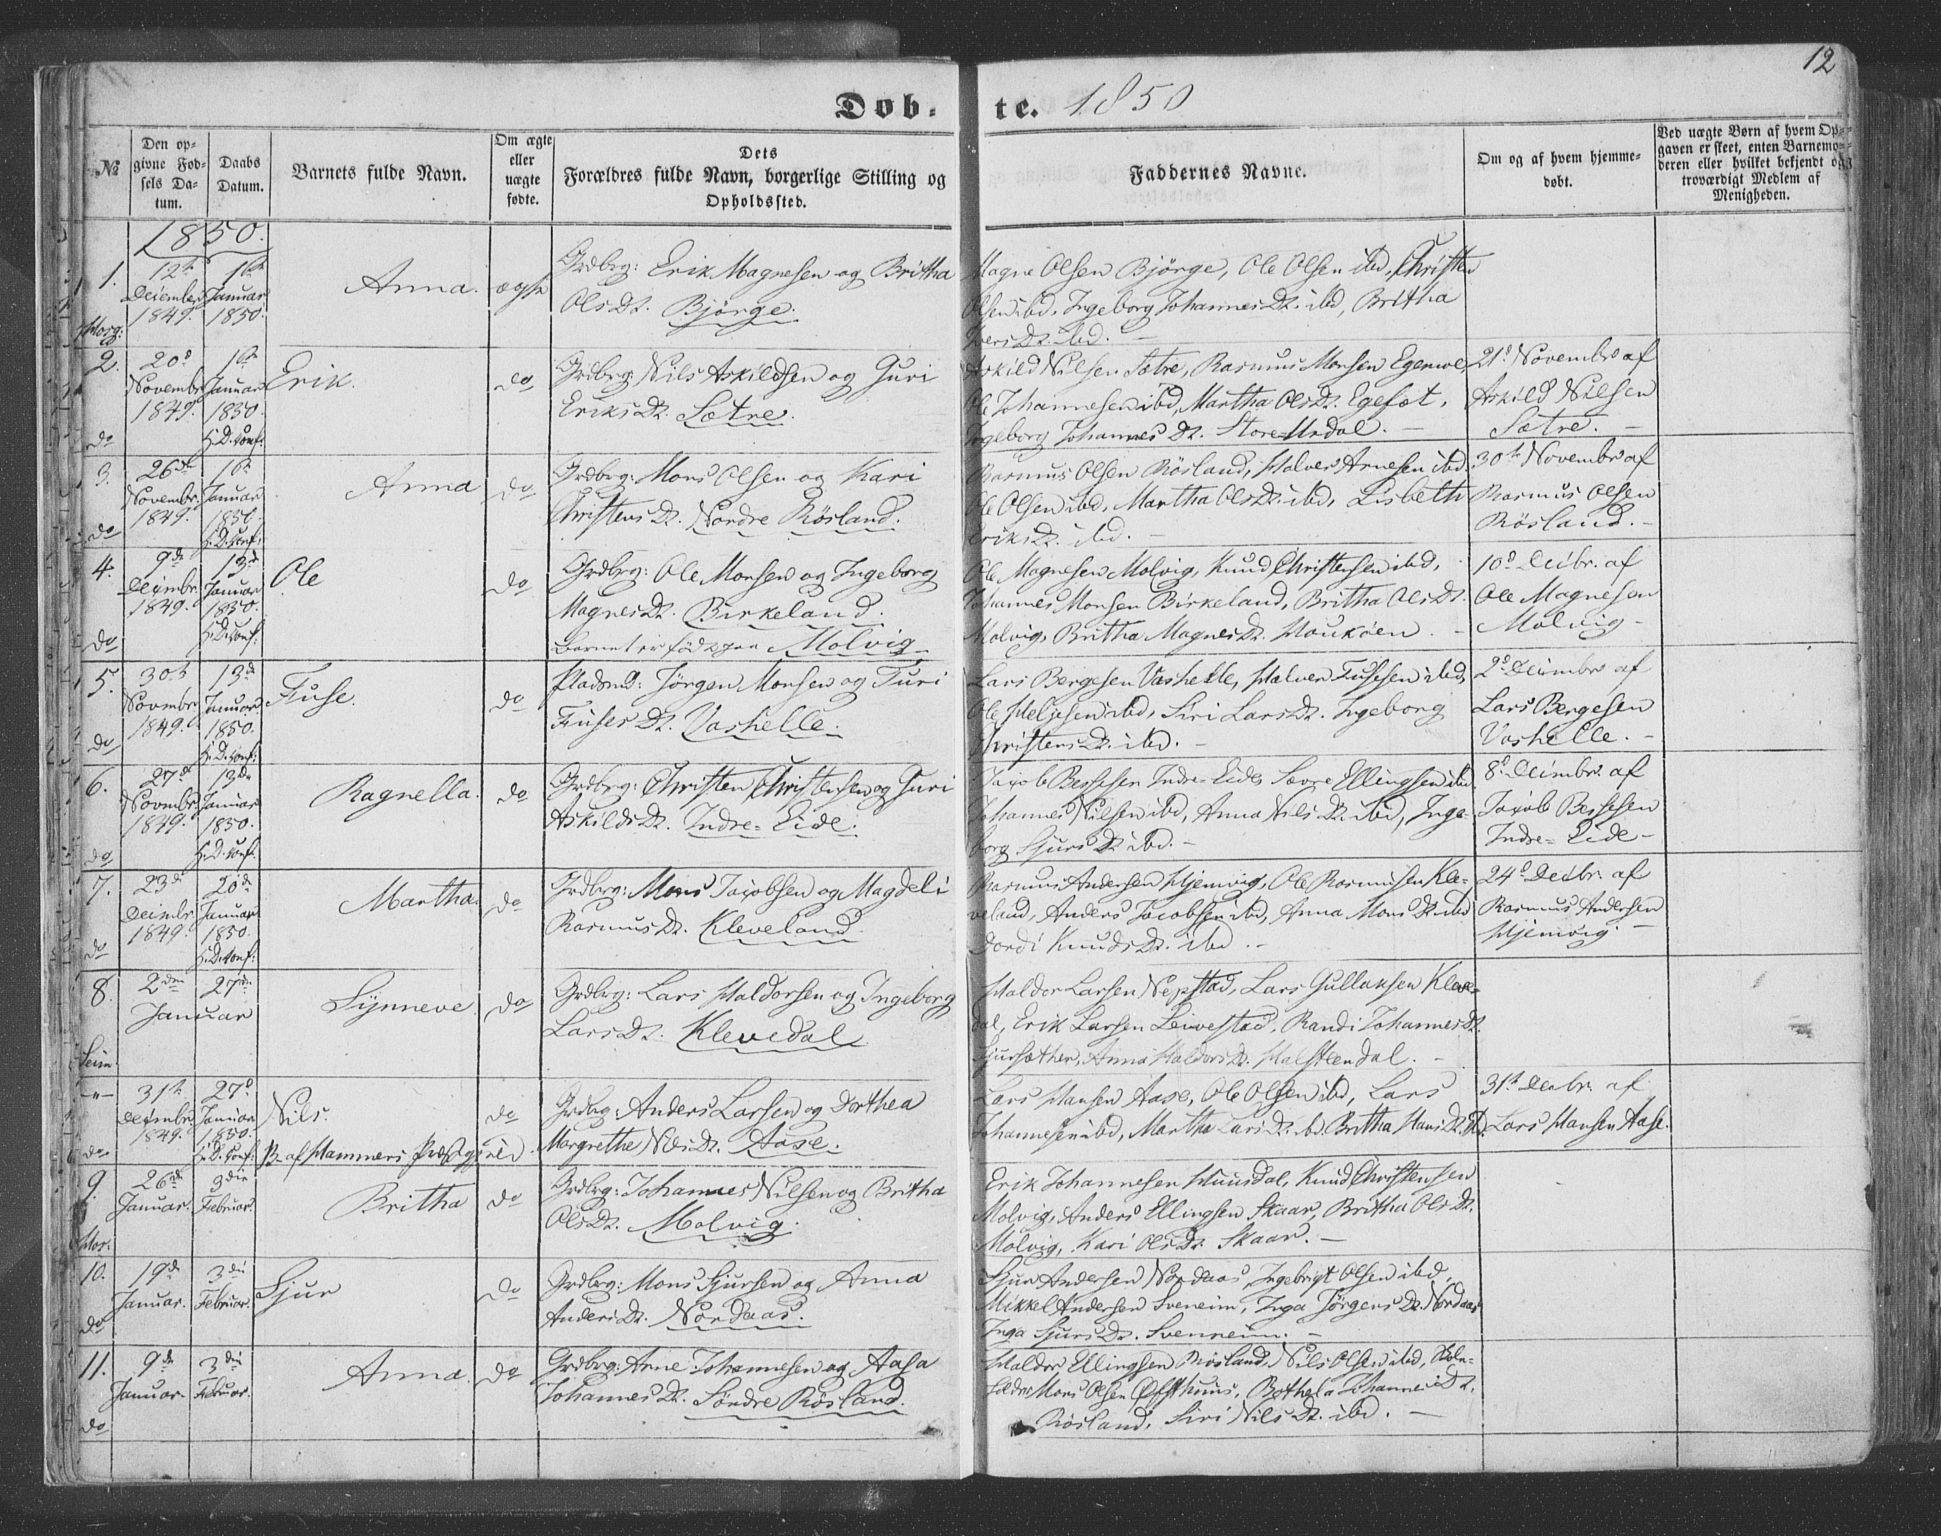 12
Døb- te. 1850
№
Den op-
givne Fød-
sels Da-
tum.
Daabs
Datum.
Barnets fulde Navn.
Om ægte
eller
uægte
fødte.
Dets
Forældres fulde Navn, borgerlige Stilling og
Opholdssted.
Faddernes Navne.
Om og af hvem hjemme-
døbt.
Ved uægte Børn af hvem Op-
gaven er skeet, enten Barnemo-
deren eller hvilket bekjendt og
troværdigt Medlem af
Menigheden.
1850.
1.
12te
Decembr
1849.
1te
Januar
1850.
Anna.
ægte
Grdbrg: Erik Magnesen og Britha
Olsdt. Bjørge.
Magne Olsen Bjørge, Ole Olsen ibd, Christen
Olsen ibd, Ingeborg Johannesdt. ibd, Britha
Iversdt. ibd.
2.
20d
Novembr
1849.
1te
Januar
1850.
H.D. Conf:
do
Erik.
do
Grdbrg: Nils Askildsen og Guri
Eriksdt. Sætre.
Askild Nilsen Sætre, Rasmus Monsen
Ole Johannesen ibd, Martha Olsdt.
Ingeborg Johannesdt. Store-Urdal.
21d Novembr af
Askild Nilsen
Sætre.
3.
26de
Novembr.
1849.
1te
Januar
1850
H.D. Conf:
do
Anna
do
Grdbrg: Mons Olsen og Kari
Christensdt. Nordre Røsland.
Rasmus Olsen Røsland, Halver Arnesen ibd.
Ole Olsen ibd, Martha Olsdt. ibd, Lisbeth
Eriksdt. ibd.
30te Novembr af
Rasmus Olsen
Røsland.
4.
9de
Decmbr.
1849.
13de
Januar
1850.
H.D. Conf:
do
Ole
do
Grdbrg: Ole Monsen og Ingeborg
Magnesdt. Birkeland.
Barnet er født paa Molvig
Ole Magnesen Molvig, Knud Christensen ibd,
Johannes Monsen Birkeland, Britha Olsdt.
Molvig, Britha Magnesdt. Haukøen.
10d Decbr. af
Ole Magnesen
Molvig
5.
30te
Novmbr.
1849.
13de
Januar
1850.
H.D. Conf:
do
Fuse.
do
Pladsmd: Jørgen Monsen og Turi
Fusesdt. Vashelle.
Lars Bergesen Vashelle, Halver Fusesen ibd,
Ole Heljesen ibd, Siri Larsdt. Ingeborg
Christensdt. ibd.
2d Decimbr af
Lars Bergesen
Vashelle.
6.
27de
Novmbr
1849.
13de
Januar
1850.
H.D. Conf:
do
Ragnella.
do
Grdbrg: Christen Christensen og Guri
Askildsdt. Indre-Eide.
Jacob Bessesen Indre-Eide, Sævre Ellingsen ibd
Johannes Nilsen ibd, Anna Nilsdt. ibd, Inge-
borg Sjursdt ibd.
8d Decimbr. af
Jacob Bessesen
Indre-Eide
7.
23de
Decimbr.
1849.
20de
Januar
1850.
H.D. Conf:
do
Martha.
do
Grdbrg: Mons Jacobsen og Magdeli
Rasmusdt. Kleveland.
Rasmus Andersen Hjemvig, Ole Rasmusen Kle-
veland, Anders Jacobsen ibd, Anna Monsdt. ibd
Dordi Knudsdt. ibd.
24d Decbr. af
Rasmus Andersen
Hjemvig.
8.
2den
27de
Januar
Seim
Synneve
do
Grdbrg: Lars Haldorsen og Ingeborg
Larsdt. Klevedal
Haldor Larsen Nepstad, Lars Gullaksen Kleve-
dal, Erik Larsen Leivestad, Randi Johannesdt.
Sjursæther, Anna Haldorsdt. Halsteendal.
31te
Decimbr
1849.
27d
Januar
1850.
H.D. Conf:
do
Nils.
B. af Hammers Præstgjeld.
do
Grdbrg: Anders Larsen og Dorthea
Margrethe Nilsdt. Aase.
Lars Hansen Aase, Ole Olsen ibd, Lars
Johannesen ibd, Martha Larsdt. ibd Britha Hansdt. ibd.
31te Decbr. af
Lars Hansen Aase.
9.
26de
Januar.
3die
Februar.
Britha
do
Grdbrg: Johannes Nilsen og Britha
Olsdt. Molvig.
Erik Johannesen Huusdal, Knud Christensen
Molvig, Anders Ellingsen Skaar, Britha Olsdt.
Molvig, Kari Olsdt. Skaar.
10.
19de
Januar.
3die
Februar.
do
Sjur
do
Grdbrg: Mons Sjursen og Anna
Andersdt. Nordaas.
Sjur Andersen Nordaas, Ingebrigt Olsen ibd,
Mikkel Andersen Sveneim, Inga Jørgensdt. Nordaas
Inga Sjursdt. Svenneim.
11.
9de
Januar
3die
Februar.
do
Anna.
do
Grdbrg: Arne Johannesen og Aasa
Johannesdt. Søndre Røsland.
Haldor Ellingsen Røsland, Nils Olsen ibd, Skole-
holder Mons Olsen Øfsthuus, Bothela Johannesdt.
Røsland, Siri Nilsdt. ibd.